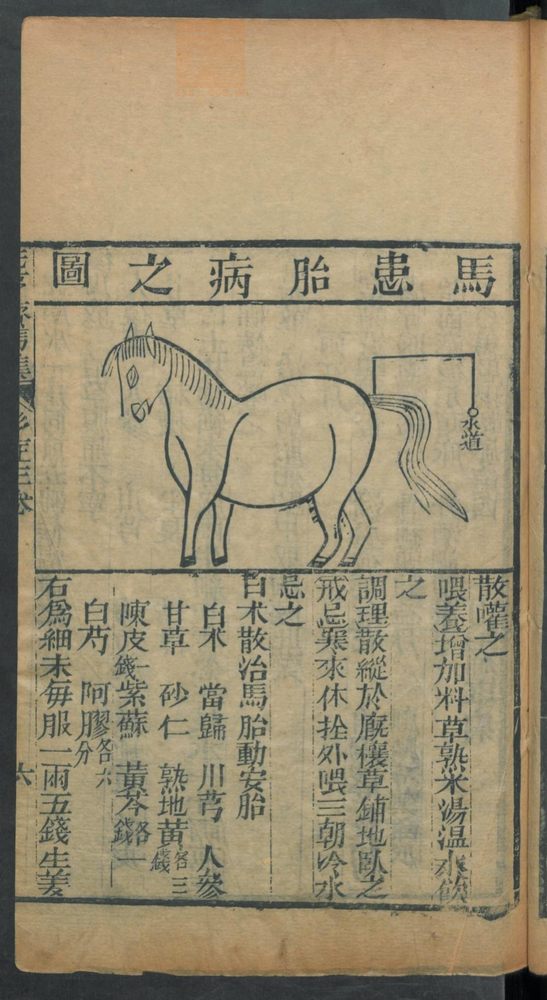 馬患胎病之圖
水道
散灌之
喂養增加料草熟米湯温水飲
之
調理散縱於廐穰草鋪地臥之
戒忌寒夾休拴外喂三朝吟水
忌之
白朮散治馬胎動安胎
白朮 當歸 川芎 人參
甘草 砂仁 熟地黃各三錢
陳皮錢一紫蘇 黃芩各一錢
白芍 阿膠各六分
右爲細末每服一兩五錢生姜
六